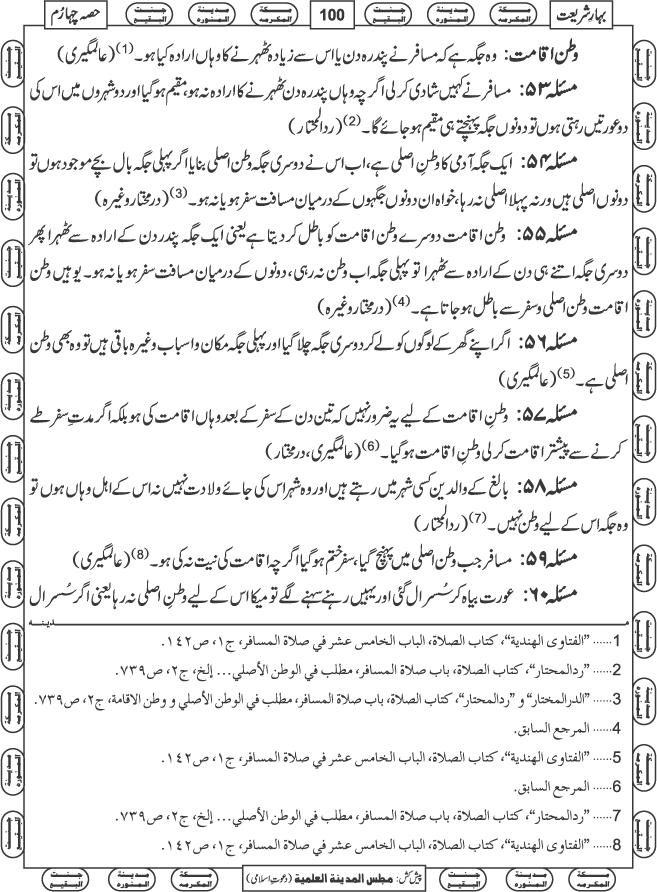 بہارِ شریعت
100
حصہ چہارم
مكة المكرمة
مدينة المنورة
جنت البقيع
وطنِ اقامت: وہ جگہ ہے کہ مسافر نے پندرہ دن یا اس سے زیادہ ٹھہرنے کا وہاں ارادہ کیا ہو۔ (1) (عالمگیری)
مسئلہ ۵۳: مسافر نے کہیں شادی کرلی اگرچہ وہاں پندرہ دن ٹھہرنے کا ارادہ نہ ہو، مقیم ہوگیا اور دو شہروں میں اس کی
دو عورتیں رہتی ہوں تو دونوں جگہ پہنچتے ہی مقیم ہو جائے گا۔ (2) (ردالمحتار)
مسئلہ ۵۴: ایک جگہ آدمی کا وطنِ اصلی ہے، اب اس نے دوسری جگہ وطنِ اصلی بنایا اگر پہلی جگہ بال بچے موجود ہوں تو
دونوں اصلی ہیں ورنہ پہلا اصلی نہ رہا، خواہ ان دونوں جگہوں کے درمیان مسافتِ سفر ہو یا نہ ہو۔ (3) (درمختار وغیرہ)
مسئلہ ۵۵: وطن اقامت دوسرے وطن اقامت کو باطل کر دیتا ہے یعنی ایک جگہ پندرہ دن کے ارادہ سے ٹھہرا پھر
دوسری جگہ اتنے ہی دن کے ارادہ سے ٹھہرا تو پہلی جگہ اب وطن نہ رہی، دونوں کے درمیان مسافتِ سفر ہو یا نہ ہو۔ یوہیں وطن
اقامت وطن اصلی و سفر سے باطل ہو جاتا ہے۔ (4) (درمختار وغیرہ)
مسئلہ ۵۶: اگر اپنے گھر کے لوگوں کو لے کر دوسری جگہ چلا گیا اور پہلی جگہ مکان و اسباب وغیرہ باقی ہیں تو وہ بھی وطن
اصلی ہے۔ (5) (عالمگیری)
مسئلہ ۵۷: وطنِ اقامت کے لیے یہ ضرور نہیں کہ تین دن کے سفر کے بعد وہاں اقامت کی ہو بلکہ اگر مدتِ سفر طے
کرنے سے پیشتر اقامت کرلی وطنِ اقامت ہوگیا۔ (6) (عالمگیری، درمختار)
مسئلہ ۵۸: بالغ کے والدین کسی شہر میں رہتے ہیں اور وہ شہر اس کی جائے ولادت نہیں نہ اس کے اہل وہاں ہوں تو
وہ جگہ اس کے لیے وطن نہیں۔ (7) (ردالمحتار)
مسئلہ ۵۹: مسافر جب وطن اصلی میں پہنچ گیا، سفر ختم ہوگیا اگرچہ اقامت کی نیت نہ کی ہو۔ (8) (عالمگیری)
مسئلہ ۶۰: عورت بیاہ کر سُسرال گئی اور یہیں رہنے سہنے لگے تو میکا اس کے لیے وطنِ اصلی نہ رہا یعنی اگر سُسرال
مدينه
1...... "الفتاوى الهندية"، كتاب الصلاة، الباب الخامس عشر في صلاة المسافر، ج١، ص١٤٢.
2...... "ردالمحتار"، كتاب الصلاة، باب صلاة المسافر، مطلب في الوطن الأصلي... إلخ، ج٢، ص٧٣٩.
3...... "الدرالمختار" و "ردالمحتار"، كتاب الصلاة، باب صلاة المسافر، مطلب في الوطن الأصلي و وطن الاقامة، ج٢، ص٧٣٩.
4...... المرجع السابق.
5...... "الفتاوى الهندية"، كتاب الصلاة، الباب الخامس عشر في صلاة المسافر، ج١، ص١٤٢.
6...... المرجع السابق.
7...... "ردالمحتار"، كتاب الصلاة، باب صلاة المسافر، مطلب في الوطن الأصلي... إلخ، ج٢، ص٧٣٩.
8...... "الفتاوى الهندية"، كتاب الصلاة، الباب الخامس عشر في صلاة المسافر، ج١، ص١٤٢.
پیش کش: مجلس المدینة العلمیة (دعوتِ اسلامی)